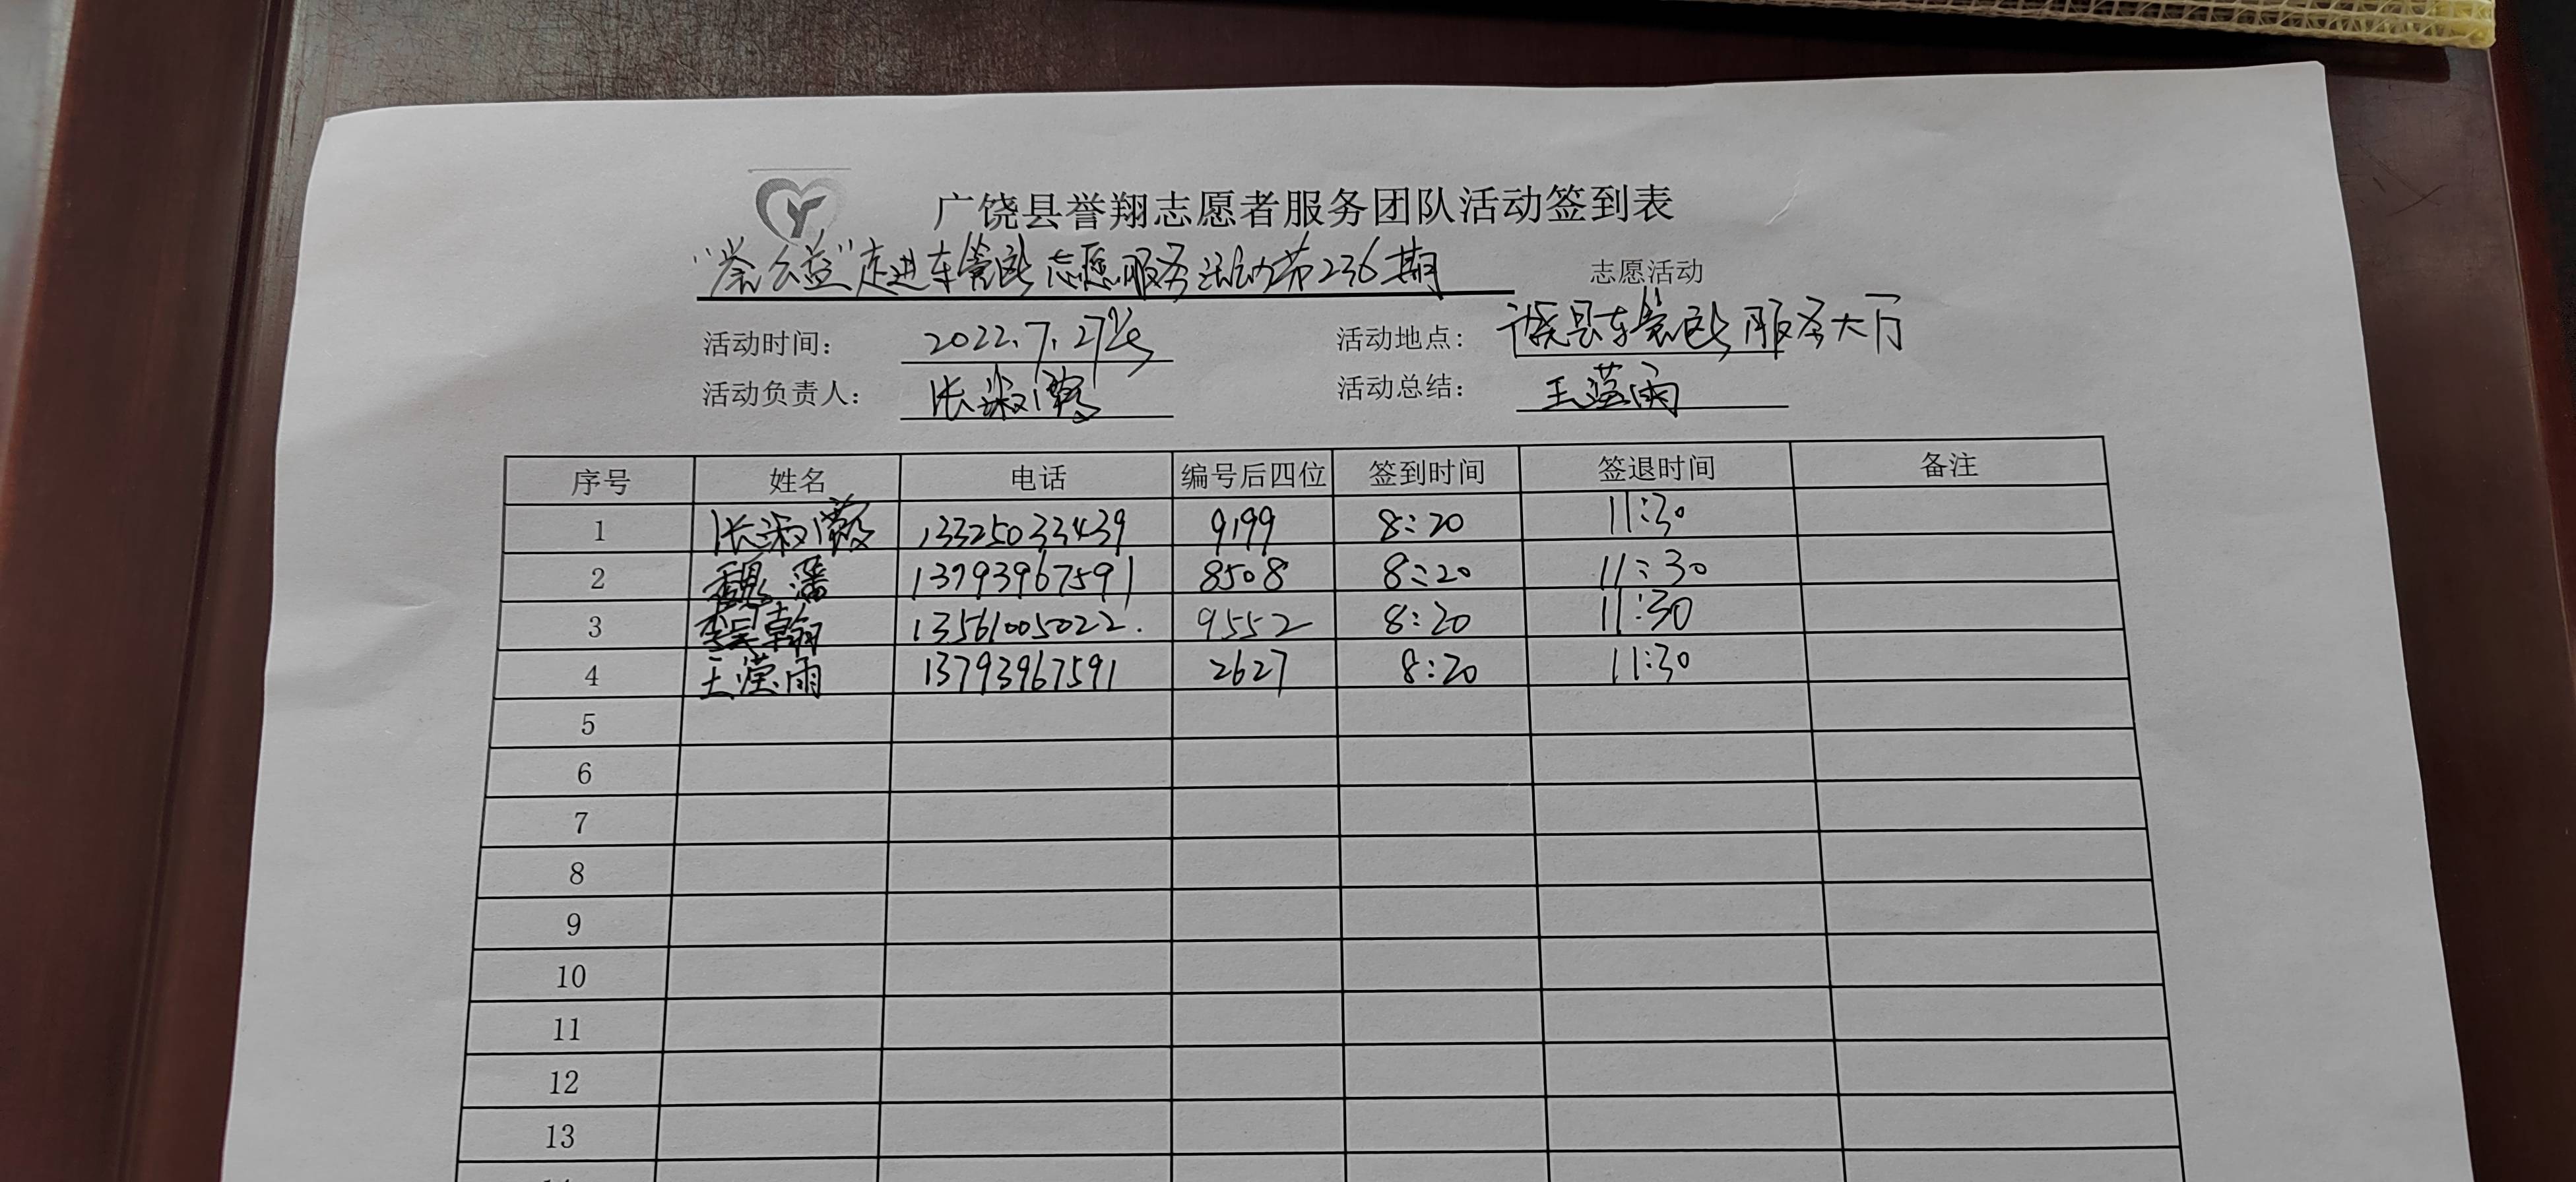 广饶县誉翔志愿者服务团队活动签到表
"誉公益"走进车管所志愿服务活动第236期 志愿活动
活动时间： 2022.7.27号 活动地点： 广饶县车管所服务大厅
活动负责人： 张淑 活动总结： 王莹雨
序号 姓名 电话 编号后四位 签到时间 签退时间 备注
1 张淑 13325033439 9199 8:20 11:30
2 魏潘 13793967591 8508 8:20 11:30
3 翰 13561005022. 9552 8:20 11:30
4 王滢雨 13793967591 2627 8:20 11:30
5
6
7
8
9
10
11
12
13